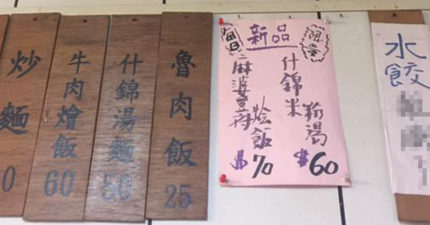 炒麵
0
牛肉燴飯
60
什錦湯麵
50
魯肉飯
25
新品
每日
限量
什錦米粉湯
$60
麻婆豆腐燴飯
$70
水餃